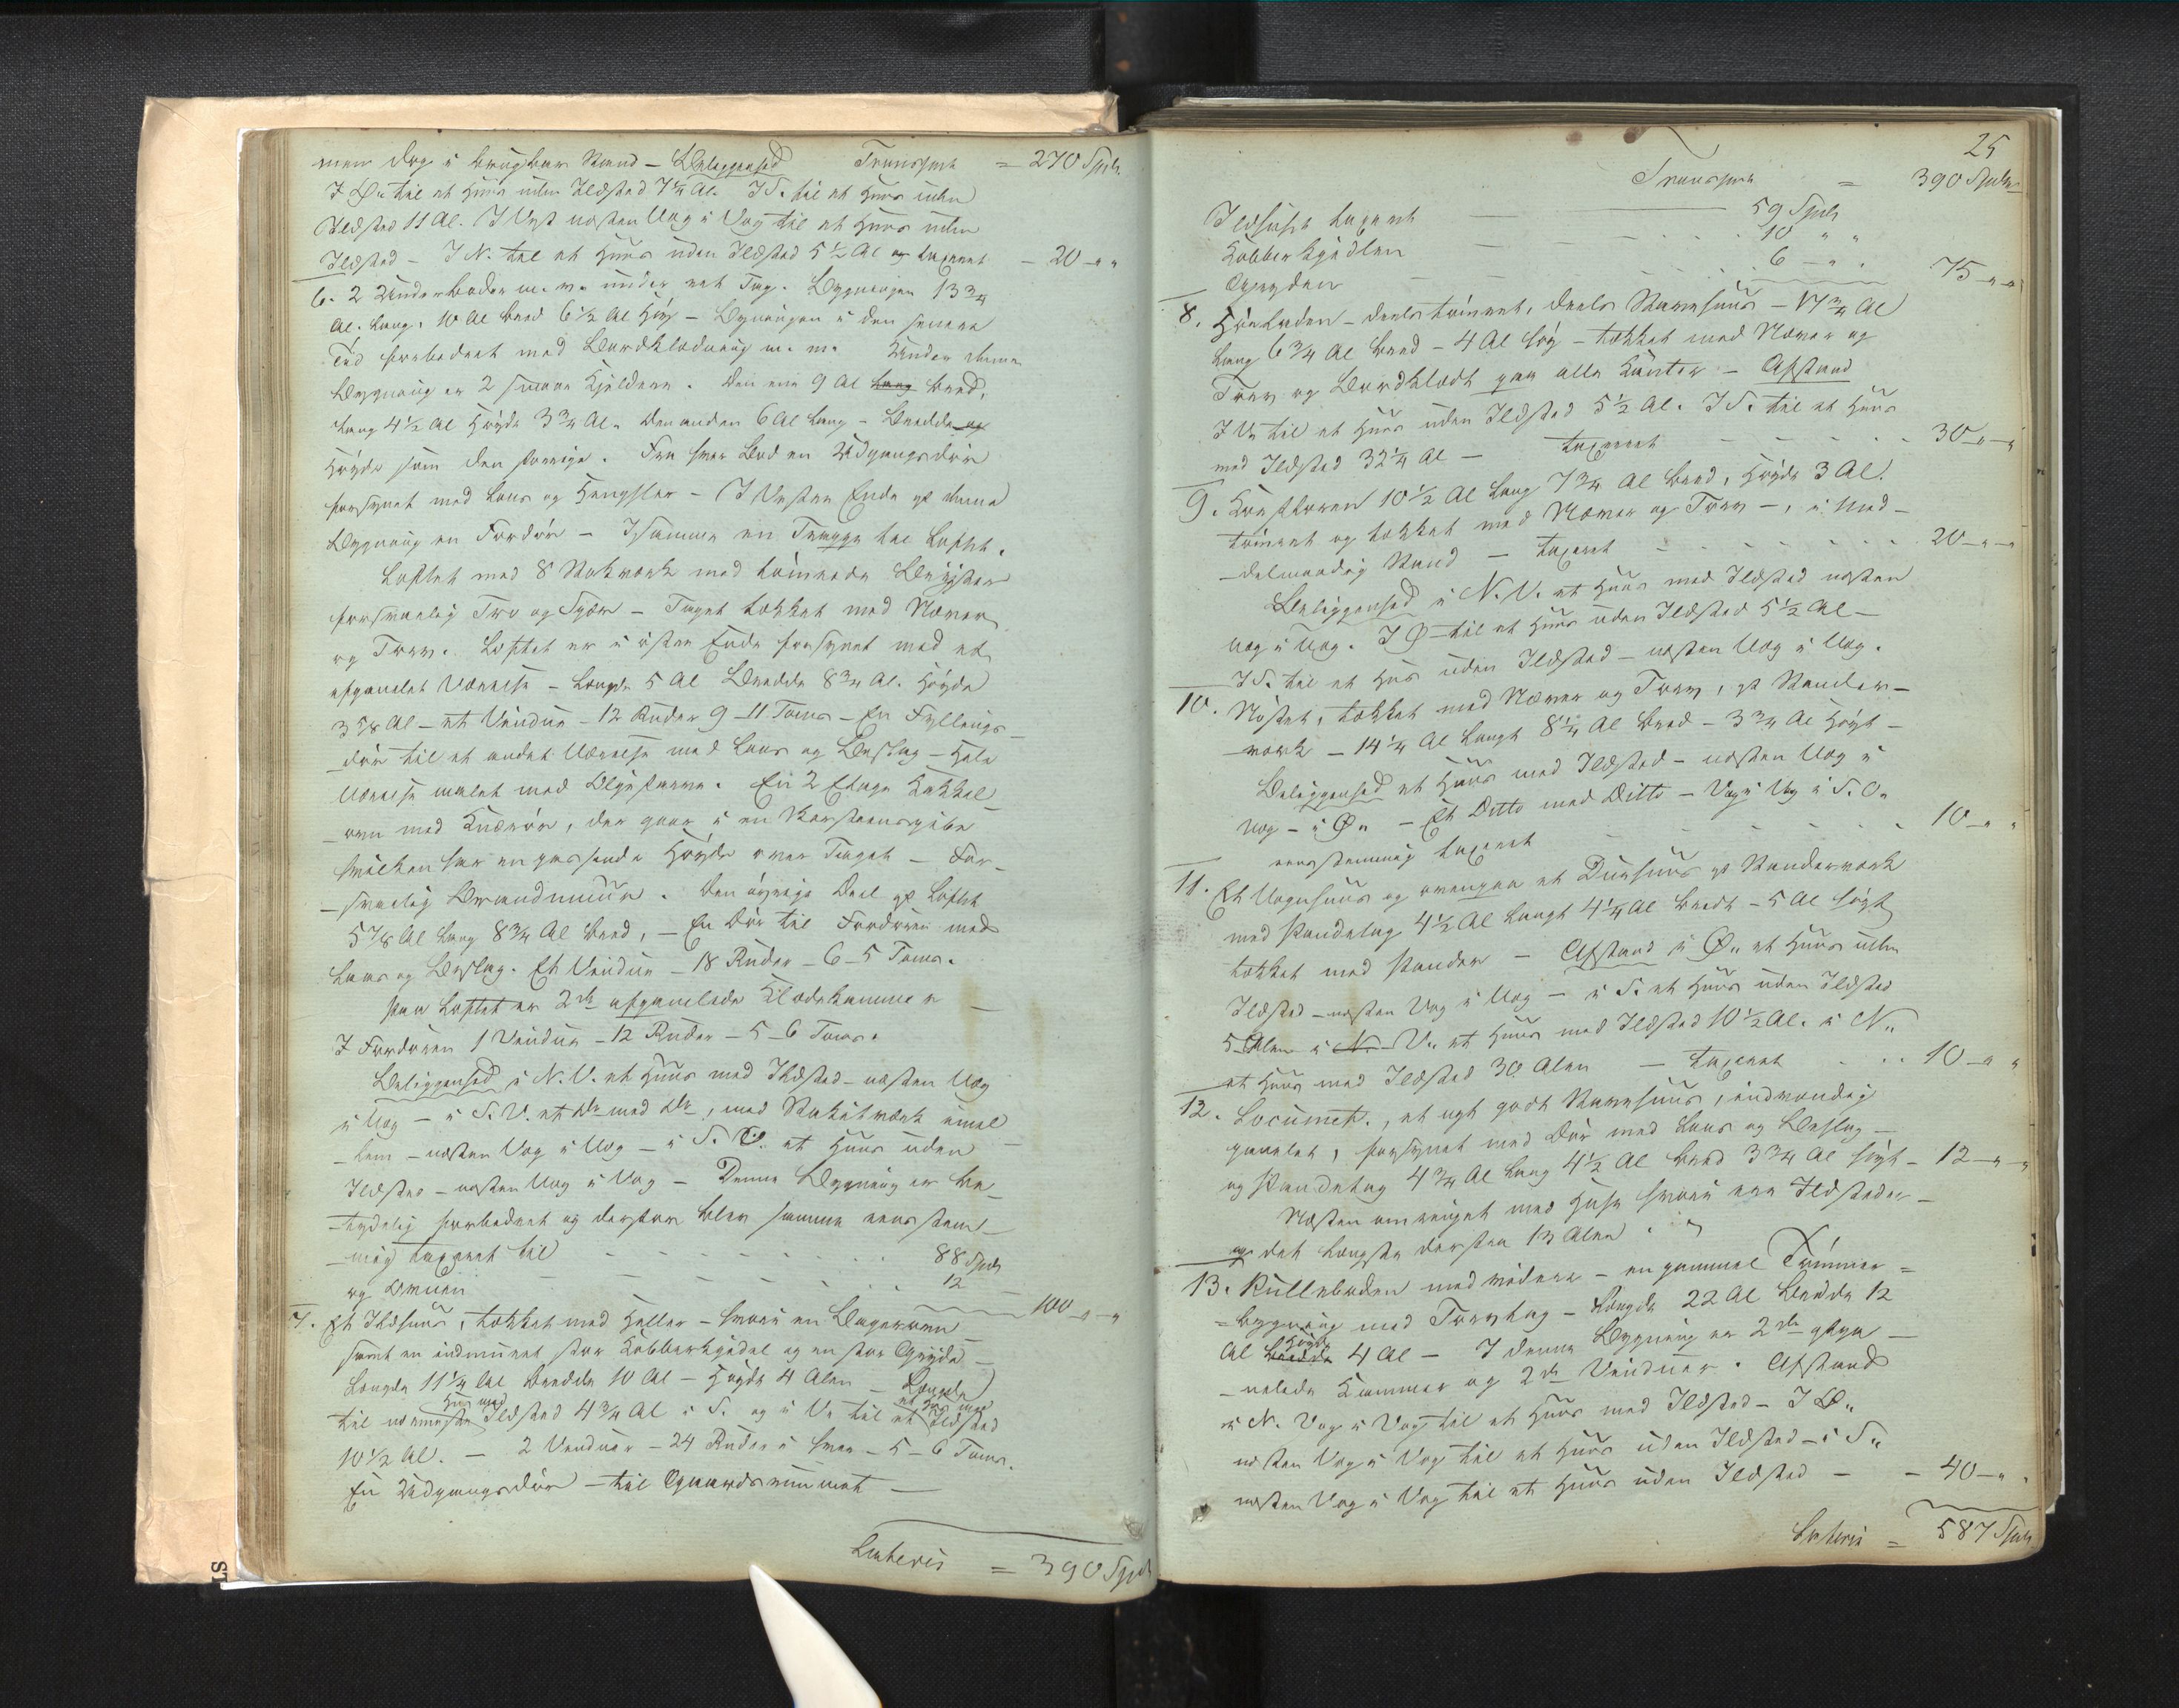 men dog i brugbar Stand – Beliggenhed Transport = 270 Spdr
I Ø. til et Huus uden Ildsted 7¼ Al. I S. til et Huus uden
Ildsted 11 Al. I Vest næsten Væg i Væg til et Huus uden
Ildsted – I N. til et Huus uden Ildsted 5½ Al og taxeret – 20 – " "
6. 2 Underboder m. v. under eet Tag. Bygningen 13¾
Al. lang, 10 Al bred 6½ Al høj – Bygningen i den senere
Tid forbedret med Bordklædning m. m. Under denne
Bygning er 2 smaae Kjeldere. Den ene 9 Al lang bred,
lang 4½ Al Høyde 3¾ Al. Den anden 6 Al lang – Bredde og
Høyde som den forrige. Fra hver Bod en Udgangsdør
forsynet med Laas og Hengsler – I Vestre Ende af denne
Bygning en Fordør – I samme en Trappe til Loftet.
Loftet med 8 Stokværk med tømrede
forsvarlig Tro og Sperr – Taget tækket med Næver
og Torv. Loftet er i østre Ende forsynet med et
afpanelet Værelse – Længde 5 Al Bredde 8¾ Al. Høyde
3⅝ Al – et Vindue – 12 Ruder 9–11 Tom – En Fyllings-
-dør til et andet Værelse med Laas og Beslag – Hele
Værelse malet med Oljefarve. En 2 Etages Kakkel-
-ovn med Knærør, der gaar i en Skorsteenspibe
hvilken har en passende Høyde over Taget – For-
-svarlig Brandmuur. Den øvrige Deel af Loftet
5⅞ Al lang 8¾ Al bred, – En Dør til Fordøren med
Laas og Beslag. Et Vindue – 18 Ruder – 6–5 Tom.
Paa Loftet er 2de afpanelede Klædekammer –
I Fordøren 1 Vindue – 12 Ruder – 5–6 Tom.
Beliggenhed i N. V. et Huus med Ildsted – næsten Væg
i Væg – i S. V. et do med do, med Stakitværk imel-
-lem – næsten Væg i Væg – i S. O. et Huus uden
Ildsted – næsten Væg i Væg – Denne Bygning er be-
-tydelig forbedret og derfor blev samme eenstem-
-mig taxeret til – – – – – – 88 Spdr
og Ovnen – – – – – – 12 – 100 – " – "
7. Et Ildhuus, tækket med Heller – hvori en Bagerovn –
samt en indmuret stor Kobberkjedel og en stor Gryde –
Længde 11¼ Al Bredde 10 Al – Høyde 4 Alen – Længde
til nærmeste Huus med Ildsted 4¾ Al i S. og i V. til et Huus med Ildsted
10½ Al. – 2 Vinduer – 24 Ruder i hver – 5–6 Tom.
En Udgangsdør – til Gaardsrummet –
Lateris = 390 Spdr
25
Transport = 390 Spdr
Ildhuset taxeret – – 59 Spdr
Kobberkjedlen – – – 10 " "
Gryden – – – – 6 – " . 75 – " – "
8. Høeladen – deels tømret, deels Stavehuus – 17¾ Al
lang 6¾ Al bred – 4 Al høj – tækket med Næver og
Torv og Bordklædt paa alle Kanter – Afstand
I V. til et Huus uden Ildsted 5½ Al. I S. til et Huus
med Ildsted 32¼ Al – taxeret – – – – 30 – " – "
9. 10½ Al lang 7¾ Al bred, Høyde 3 Al.
tømret og tækket med Næver og Torv –, i Mid-
-delmaadig Stand – taxeret – – – – – – 20 – " – "
Beliggenhed i N. V. et Huus med Ildsted næsten
Væg i Væg. I Ø – til et Huus uden Ildsted 5½ Al –
I S. til et Hus uden Ildsted – næsten Væg i Væg.
10. Nøstet, tækket med Næver og Torv, af Stander-
-værk – 14¼ Al langt 8¼ Al bred – 3¾ Al høyt –
Beliggenhed et Huus med Ildsted – næsten Væg i
Væg – i Ø. – Et Ditto med Ditto – Væg i Væg i S. O.
eenstemmig taxeret – – – – – – 10 – " "
11. Et Vognhuus og ovenpaa et Duehuus af Standerværk
med Pandetag 4½ Al langt 4¼ Al bredt – 5 Al høyt
tækket med Pander – Afstand i Ø. et Huus uden
Ildsted – næsten Væg i Væg – i S. et Huus uden Ildsted
5 Alen i N. V. et Huus med Ildsted 10½ Al. i N.
et Huus med Ildsted 30 Alen – taxeret – . . 10 – " "
12. Locumet, et nyt godt Stavehuus, indvendig
panelet, forsynet med Dør med Laas og Beslag –
og Pandetag 4¾ Al lang 4½ Al bred 3¾ Al høyt – 12 – " – "
Næsten omringet med Huse hvori ere Ildsteder –
og det længste derfra 13 Alen
13. Rulleboden med videre – en gammel Tømmer=
=bygning med Torvtag – Længde 22 Al Bredde 12
Al Bredde Høyde 4 Al – I denne Bygning er 2de afpa-
-nelede Kammer og 2de Vinduer. Afstand
i N. Væg i Væg til et Huus med Ildsted – I Ø.
næsten Væg i Væg til et Huus uden Ildsted – i S.
næsten Væg i Væg til et Huus uden Ildsted – – 40 – " .
Lateris = 587 Spdr